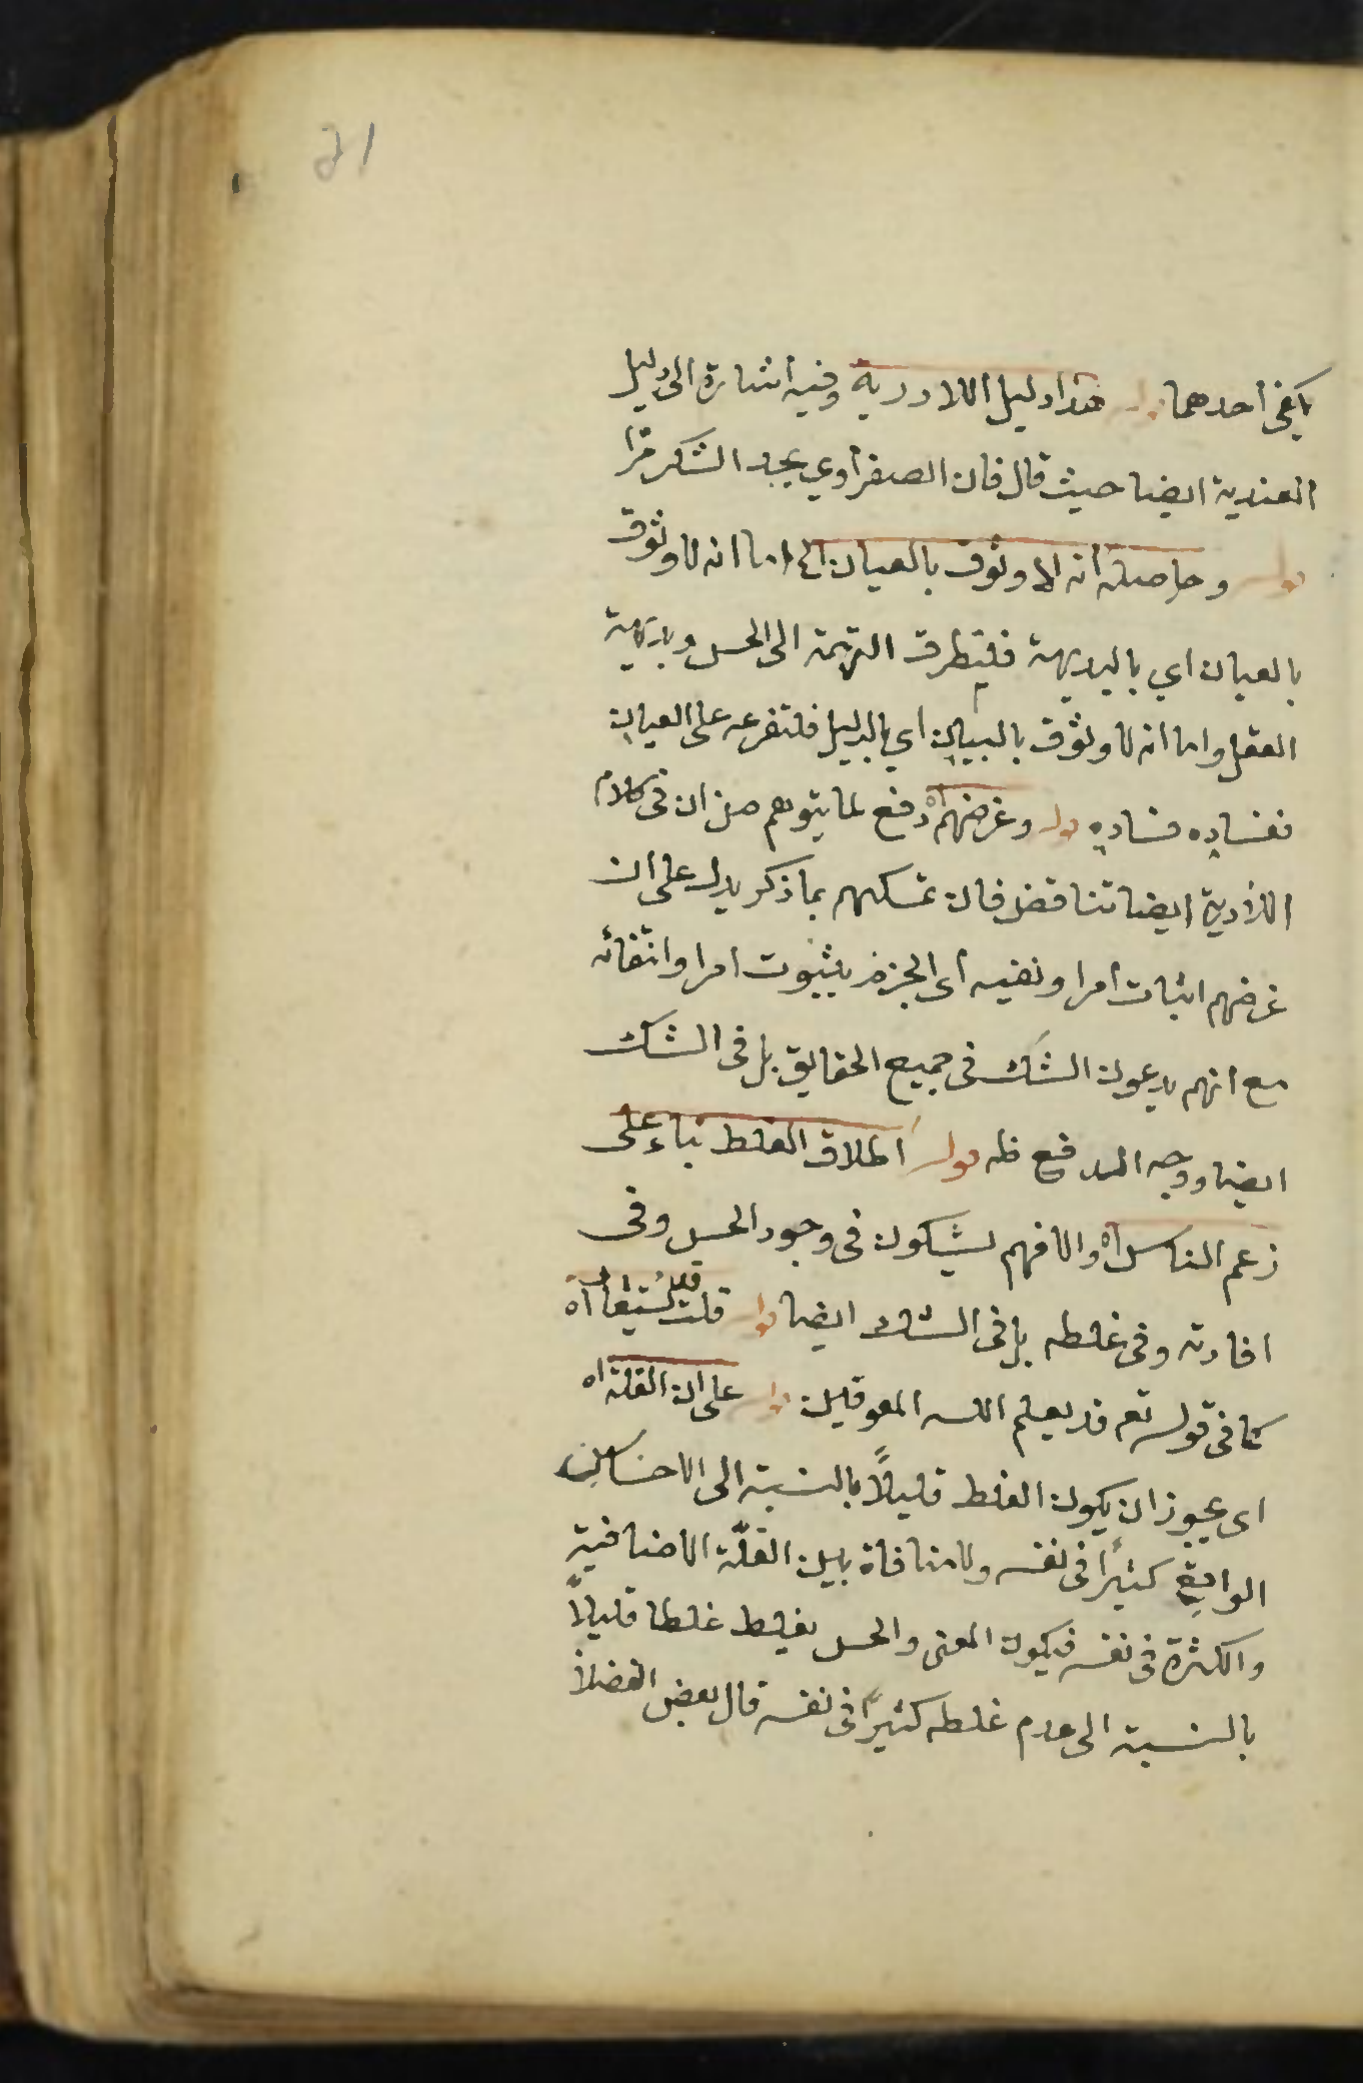 21
يكفى احدهما قوله هذا دليل اللاادرية وفيه اشارة الى دليل
العندية ايضا حيث قال فان الصفراوي يجد السكر مرّا
قوله وحاصله انه لا وثوق بالعيان الخ اما انه لا وثوق
بالعيان اي بالبديهة فليتطرق التهمة الى الحس وبديهة
العقل واما انه لا وثوق بالبيان اي بالدليل فلتفرعه على العيان
ففساده فساده قوله وغرضهم اه دفع لما يتوهم من ان فى كلام
اللاأدرية ايضا تناقض فان تمسكهم بما ذكر يدل على ان
غرضهم اثبات امرا ونفيه اى الجزم بثبوت امرا وانتفائه
مع انهم يدعون الشك فى جميع الحقايق بل فى الشك
ايضا ووجه الدفع ظه قوله اطلاق الغلط بناء على
زعم الناس اه والا فهم يشكون فى وجود الحس وفى
افادته وفى غلطه بل فى الشك ايضا قوله قلت اه
كما فى قوله تع قد يعلم الله المعوقين قوله على ان القلة اه
اى يجوز ان يكون الغلط قليلاً بالنسبة الى الاحساس
الواقع كثيرًا فى نفسه ولا منافاة بين القلّة الاضافية
والكثرة فى نفسه فيكون المعنى والحس يغلط غلطا قليلاً
بالنسبة الى عدم غلطه كثيرًا فى نفسه قال بعض الفضلأ